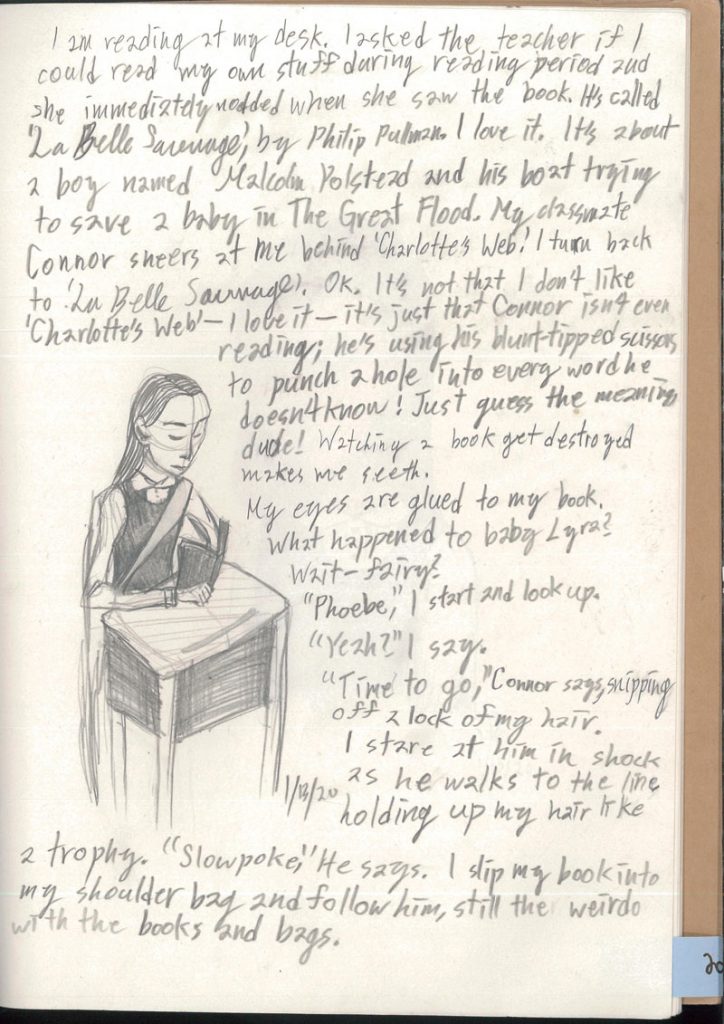 I am reading at my desk. I asked the teacher if I
could read my own stuff during reading period and
she immediately nodded when she saw the book. It's called
'La Belle Sauvage', by Philip Pullman. I love it. It's about
a boy named Malcolm Polstead and his boat trying
to save a baby in The Great Flood. My classmate
Connor sneers at me behind 'Charlotte's Web.' I turn back
to 'La Belle Sauvage'. Ok. It's not that I don't like
'Charlotte's Web' — I love it — it's just that Connor isn't even
reading; he's using his blunt-tipped scissors
to punch a hole into every word he
doesn't know! Just guess the meaning,
dude! Watching a book get destroyed
makes me seeth.
My eyes are glued to my book.
What happened to baby Lyra?
Wait — fairy?
"Phoebe," I start and look up.
"Yeah?" I say.
"Time to go," Connor says, snipping
off a lock of my hair.
I stare at him in shock
as he walks to the line
holding up my hair like
1/13/20
a trophy. "Slowpoke," He says. I slip my book into
my shoulder bag and follow him, still the weirdo
with the books and bags.
20